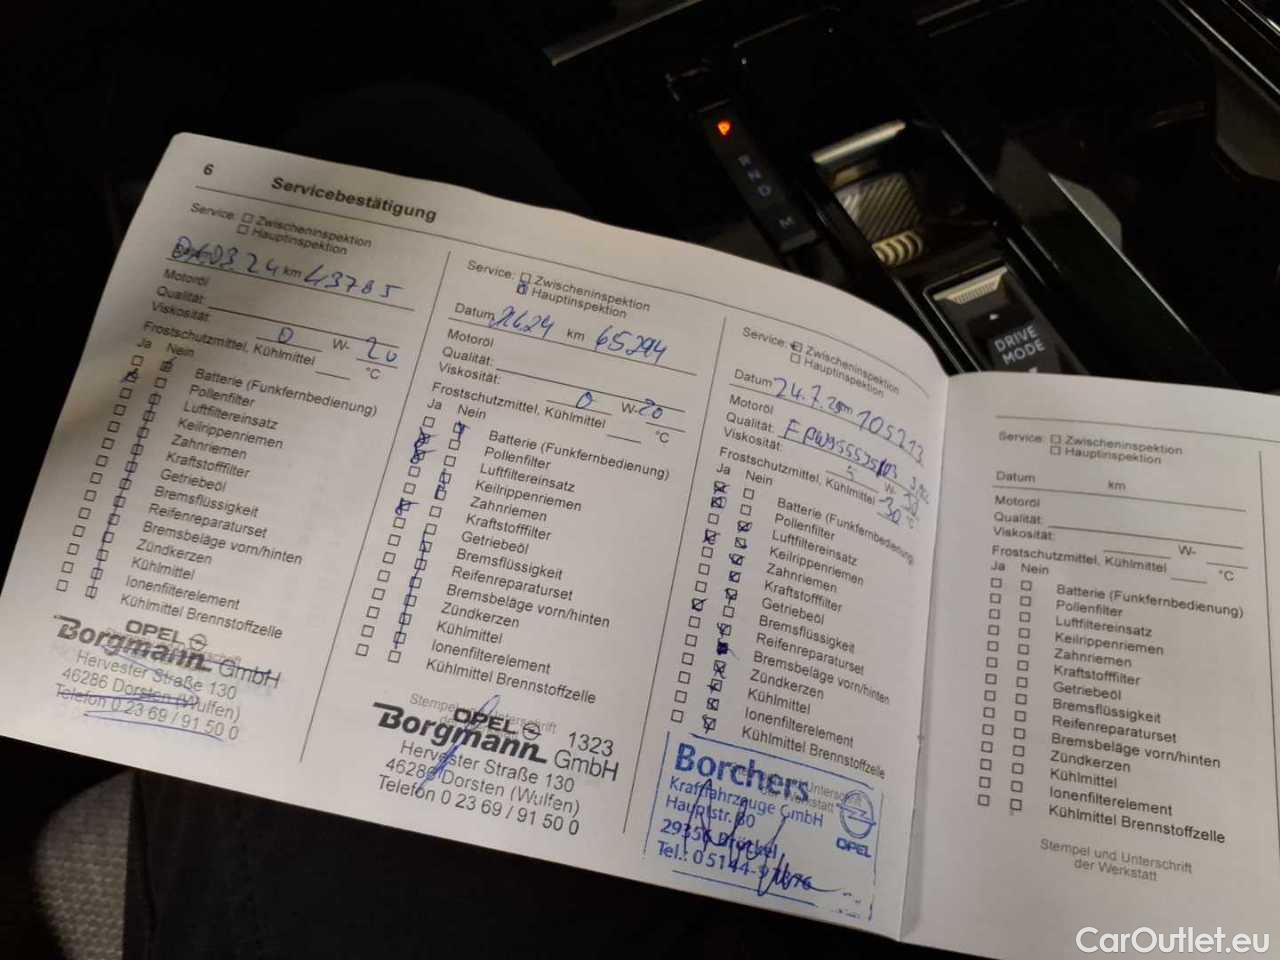 6 Servicebestätigung
Service: Zwischeninspektion
Hauptinspektion
03.24 km 43785
Motoröl
Qualität:
Viskosität: 0 W- 20
Frostschutzmittel, Kühlmittel °C
Ja Nein
Batterie (Funkfernbedienung)
Pollenfilter
Luftfiltereinsatz
Keilrippenriemen
Zahnriemen
Kraftstofffilter
Getriebeöl
Bremsflüssigkeit
Reifenreparaturset
Bremsbeläge vorn/hinten
Zündkerzen
Kühlmittel
Ionenfilterelement
Kühlmittel Brennstoffzelle
OPEL
Borgmann GmbH
Hervester Straße 130
46286 Dorsten (Wulfen)
Telefon 0 23 69 / 91 50 0
Service: Zwischeninspektion
Hauptinspektion
Datum km 65294
Motoröl
Qualität:
Viskosität: 0 W- 20
Frostschutzmittel, Kühlmittel °C
Ja Nein
Batterie (Funkfernbedienung)
Pollenfilter
Luftfiltereinsatz
Keilrippenriemen
Zahnriemen
Kraftstofffilter
Getriebeöl
Bremsflüssigkeit
Reifenreparaturset
Bremsbeläge vorn/hinten
Zündkerzen
Kühlmittel
Ionenfilterelement
Kühlmittel Brennstoffzelle
Stempel und Unterschrift
OPEL 1323
Borgmann GmbH
Hervester Straße 130
46286 Dorsten (Wulfen)
Telefon 0 23 69 / 91 50 0
Service: Zwischeninspektion
Hauptinspektion
Datum 24.7.25 km 105213
Motoröl
Qualität:
Viskosität: 5 W- 30
Frostschutzmittel, Kühlmittel -30 °C
Ja Nein
Batterie (Funkfernbedienung)
Pollenfilter
Luftfiltereinsatz
Keilrippenriemen
Zahnriemen
Kraftstofffilter
Getriebeöl
Bremsflüssigkeit
Reifenreparaturset
Bremsbeläge vorn/hinten
Zündkerzen
Kühlmittel
Ionenfilterelement
Kühlmittel Brennstoffzelle
Borchers
Kraftfahrzeuge GmbH
Hauptstr. 60
29356 Bröckel
Tel.: 0 5144-
OPEL
Service: Zwischeninspektion
Hauptinspektion
Datum km
Motoröl
Qualität:
Viskosität: W-
Frostschutzmittel, Kühlmittel °C
Ja Nein
Batterie (Funkfernbedienung)
Pollenfilter
Luftfiltereinsatz
Keilrippenriemen
Zahnriemen
Kraftstofffilter
Getriebeöl
Bremsflüssigkeit
Reifenreparaturset
Bremsbeläge vorn/hinten
Zündkerzen
Kühlmittel
Ionenfilterelement
Kühlmittel Brennstoffzelle
Stempel und Unterschrift
der Werkstatt
P
R
N
D
M
DRIVE
MODE
CarOutlet.eu